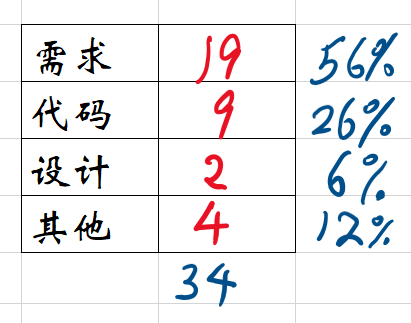 需求 19 56%
代码 9 26%
设计 2 6%
其他 4 12%
34